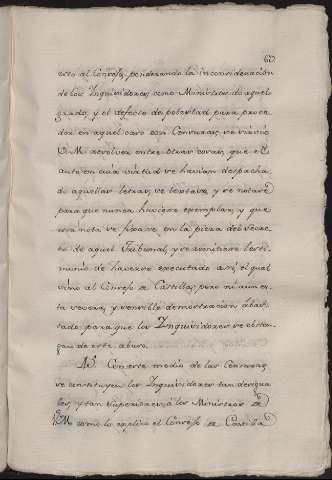 esto al Consejo, ponderando la inconsideracion
de los Inquisidores, como Ministros de aquel
grado, y el defecto de potestad para proce-
der en aquel caso con Censuras, se sirvió
V. M. resolver entre otras cosas, que el
auto en cuia virtud se havian despacha-
do aquellas letras, se testase, y se notase
para que nunca hiciese exemplar, y que
esta nota se pusiese en la pieza del secre-
to de aquel Tribunal, y se remitiese testi-
monio de haverse executado asi, el qual
vino al Consejo de Castilla; pero ni aun es-
ta severa, y sensible demostracion ha bas-
tado para que los Inquisidores se absten-
gan de este abuso.
Con este modo de las Censuras
se constituyen los Inquisidores tan desigua-
les, y tan superiores, a los Ministros de
V. M. como lo explica el Consejo de Castilla